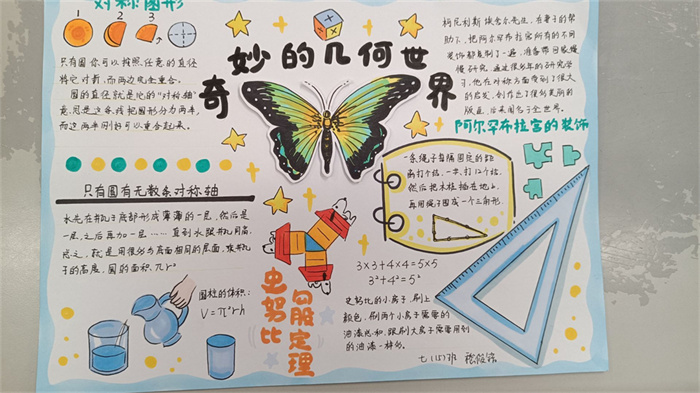 对称图形
1 2 3
只有圆你可以按照任意的直径
将它对截,而两边完全重合。
圆的直径就是它的“对称轴”
意思是这条线把图形分为两半,
而这两半刚好可以重合起来。
只有圆有无数条对称轴
水先在瓶子底部形成薄薄的一层,然后是
一层,之后再加一层……直到水跟瓶口同高
总之,就是用很多与底面相同的层面,
子的高度,圆的面积πr²
圆柱的体积:
V=π²rh
奇妙的几何世界
史努比
勾股定理
所有的不同
的装饰都复制了一遍,准备带回家慢
慢研究。通过很多年的研究学
习,他在对称方面受到了很大
的启发,创作出了很多美丽的
版画,后来闻名于全世界。
阿尔罕布拉宫的装饰
一条绳子每隔固定的距
离打个结,一共打12个结,
然后把木桩插在地上,
再用绳子围成一个三角形。
3×3+4×4=5×5
3²+4²=5²
史努比的小房子,刷上
颜色,刷两个小房子需要的
油漆总和,跟刷大房子需要用到
的油漆一样多。
七(15)班